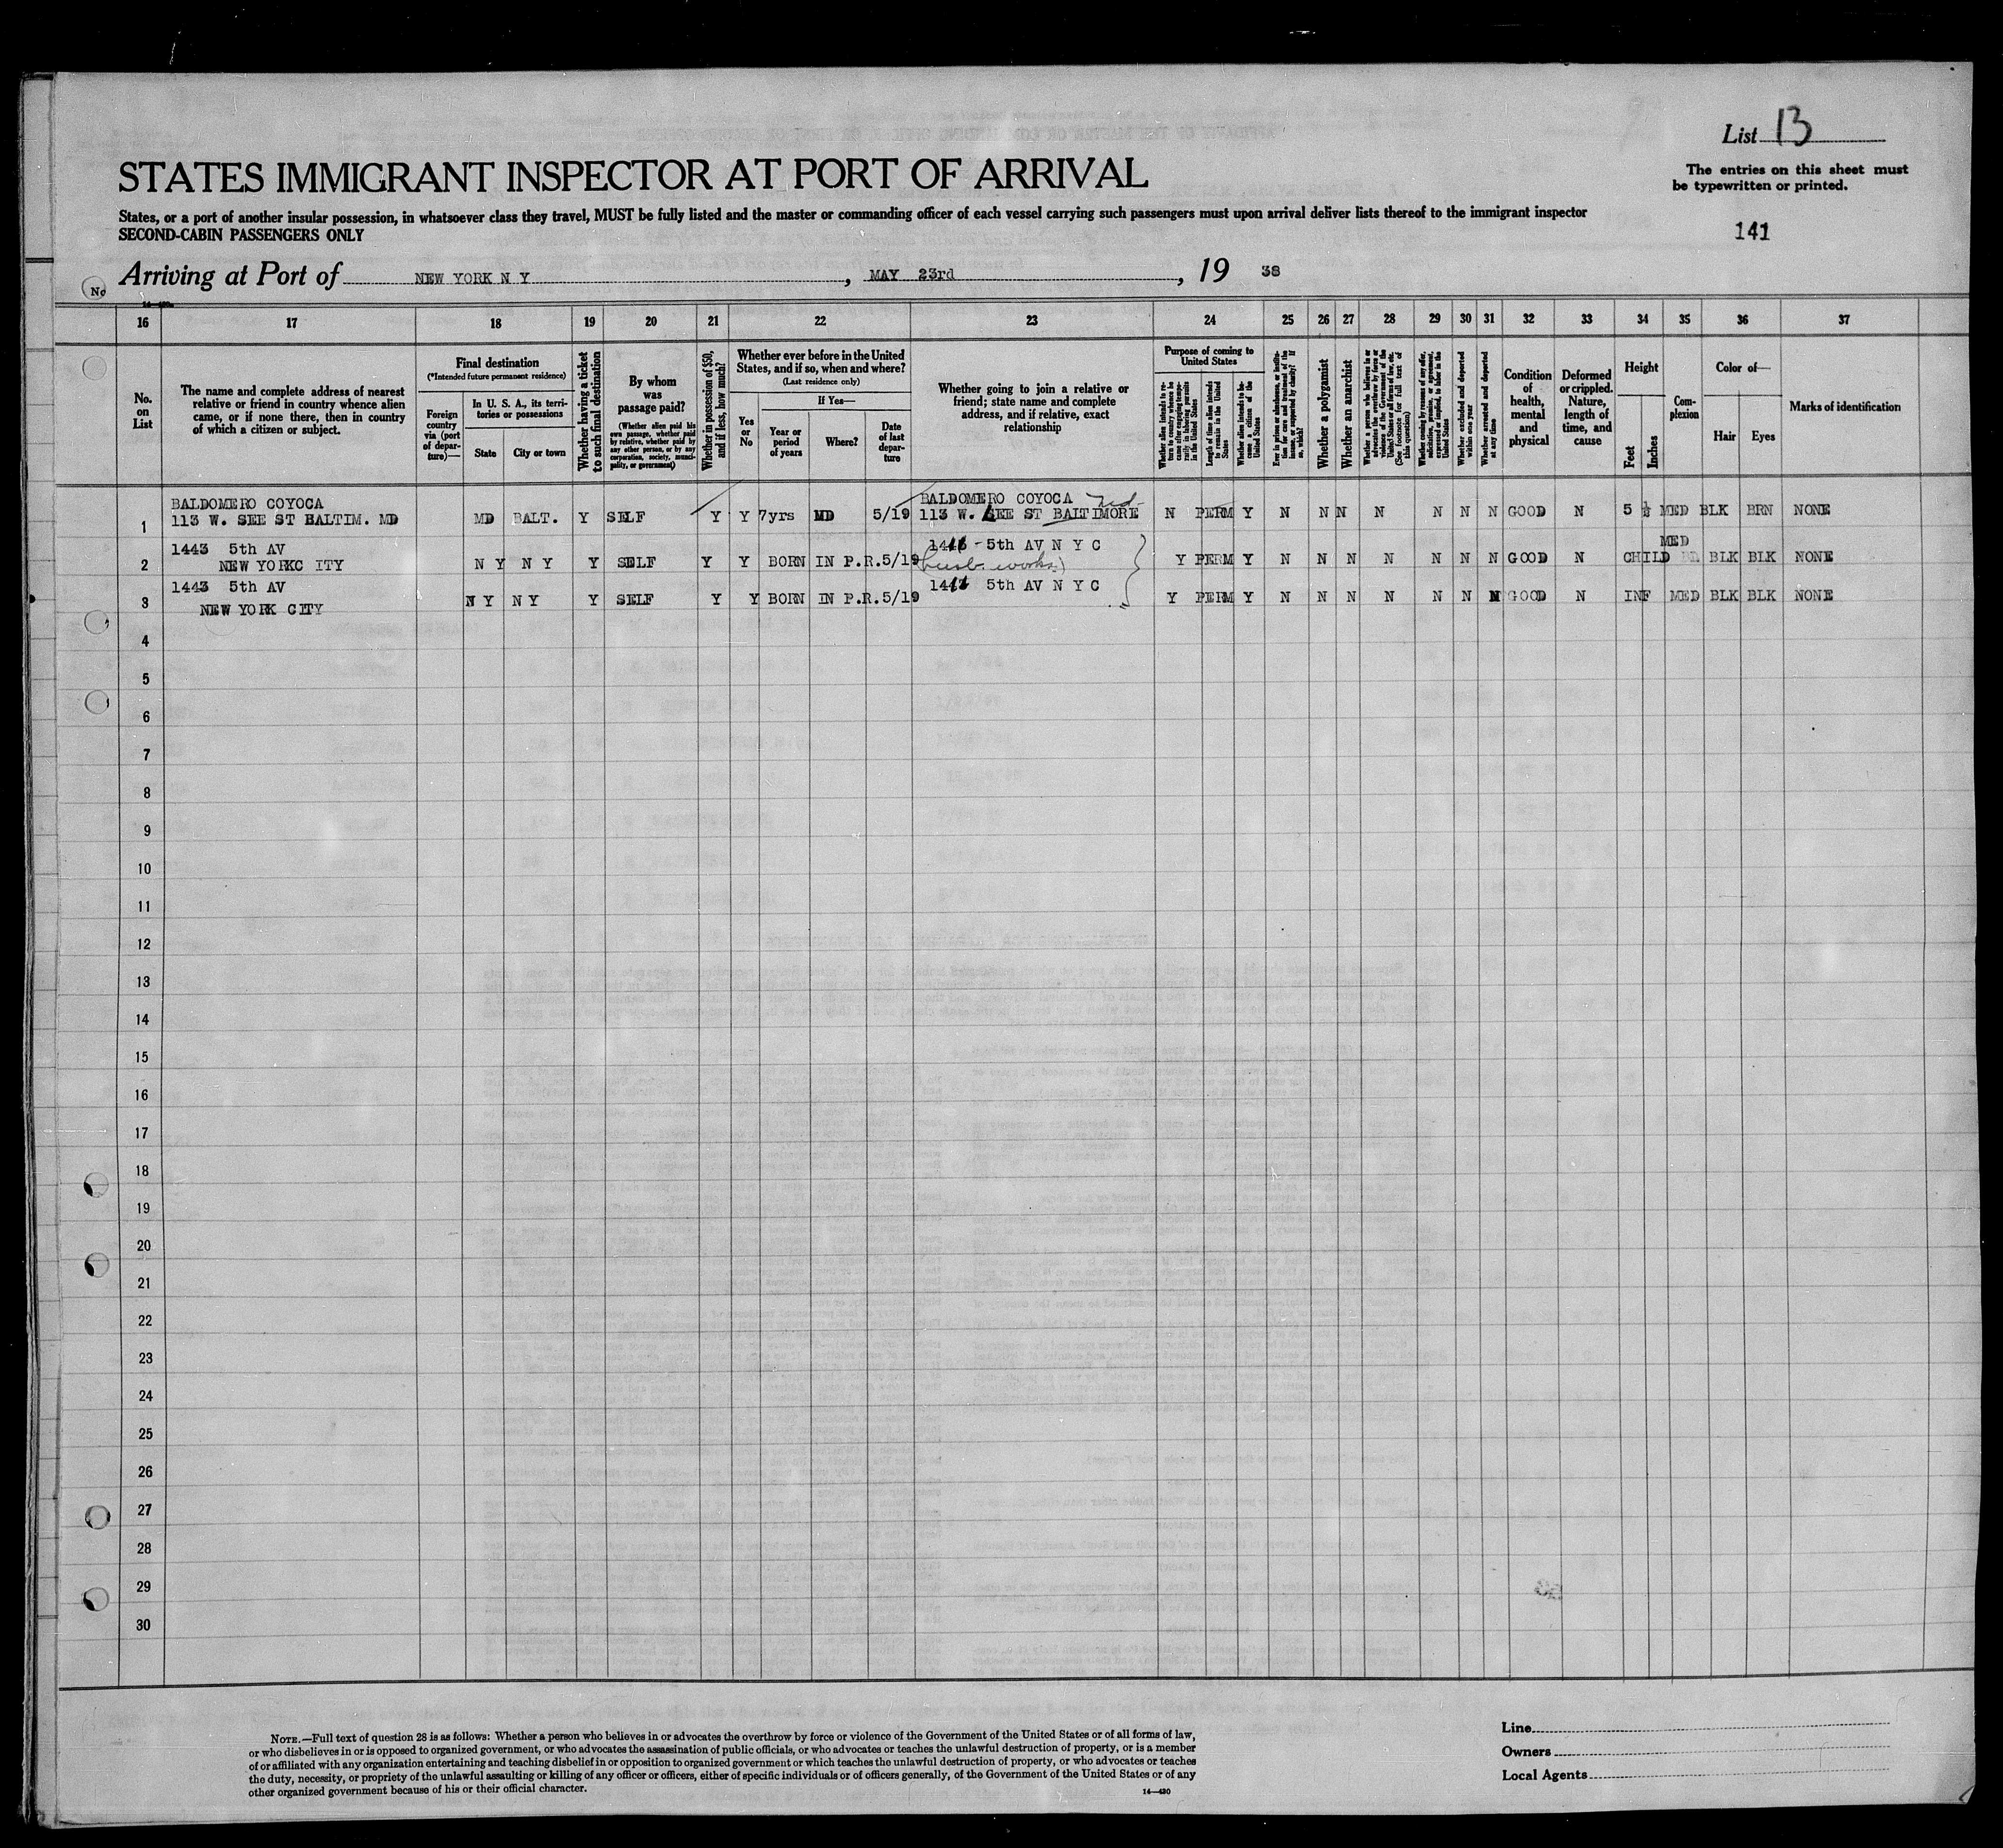 List 13
The entries on this sheet must
be typewritten or printed.
141
STATES IMMIGRANT INSPECTOR AT PORT OF ARRIVAL
States, or a port of another insular possession, in whatsoever class they travel, MUST be fully listed and the master or commanding officer of each vessel carrying such passengers must upon arrival deliver lists thereof to the immigrant inspector
SECOND-CABIN PASSENGERS ONLY
Arriving at Port of NEW YORK N Y, MAY 23rd, 19 38
No
16 17 18 19 20 21 22 23 24 25 26 27 28 29 30 31 32 33 34 35 36 37
No.
on
List
The name and complete address of nearest
relative or friend in country whence alien
came, or if none there, then in country
of which a citizen or subject.
Final destination
(*Intended future permanent residence)
Foreign
country
via (port
of depar-
ture)—
In U. S. A., its terri-
tories or possessions
State City or town
Whether having a ticket
to such final destination
By whom
was
passage paid?
(Whether alien paid his
own passage, whether paid
by relative, whether paid
by any other person, or by any
corporation, society, munici-
pality, or government)
Whether in possession of $50,
and if less, how much?
Whether ever before in the United
States, and if so, when and where?
(Last residence only)
Yes
or
No
If Yes—
Year or
period
of years
Where?
Date
of last
depar-
ture
Whether going to join a relative or
friend; state name and complete
address, and if relative, exact
relationship
Purpose of coming to
United States
Whether alien intends to re-
turn to country whence he
came after engaging tempo-
rarily in laboring pursuits
in the United States
Length of time alien intends
to remain in the United
States
Whether alien intends to be-
come a citizen of the
United States
Ever in prison or almshouse, or institu-
tion for care and treatment of the
insane, or supported by charity? If
so, which?
Whether a polygamist
Whether an anarchist
Whether a person who believes in or
advocates the overthrow by force or
violence of the Government of the
United States or all forms of law, etc.
(See footnote for full text of
this question)
Whether coming by reason of any offer,
solicitation, promise, or agreement,
expressed or implied, to labor in the
United States
Whether excluded and deported
within one year
Whether arrested and deported
at any time
Condition
of
health,
mental
and
physical
Deformed
or crippled.
Nature,
length of
time, and
cause
Height
Feet Inches
Com-
plexion
Color of—
Hair Eyes
Marks of identification
BALDOMERO COYOCA BALDOMERO COYOCA
1 113 W. SEE ST BALTIM. MD MD BALT. Y SELF Y Y 7yrs MD 5/19 113 W. LEE ST BALTIMORE N PERM Y N N N N N N N GOOD N 5 MED BLK BRN NONE
1443 5th AV 5th AV N Y C MED
2 NEW YORKC ITY N Y N Y Y SELF Y Y BORN IN P.R. 5/19 Y PERM Y N N N N N N N GOOD N CHILD BLK BLK NONE
1443 5th AV 5th AV N Y C
3 NEW YORK CITY N Y N Y Y SELF Y Y BORN IN P.R. 5/19 Y PERM Y N N N N N N N GOOD N INF MED BLK BLK NONE
4
5
6
7
8
9
10
11
12
13
14
15
16
17
18
19
20
21
22
23
24
25
26
27
28
29
30
NOTE.—Full text of question 28 is as follows: Whether a person who believes in or advocates the overthrow by force or violence of the Government of the United States or of all forms of law,
or who disbelieves in or is opposed to organized government, or who advocates the assassination of public officials, or who advocates or teaches the unlawful destruction of property, or is a member
of or affiliated with any organization entertaining and teaching disbelief in or opposition to organized government or which teaches the unlawful destruction of property, or who advocates or teaches
the duty, necessity, or propriety of the unlawful assaulting or killing of any officer or officers, either of specific individuals or of officers generally, of the Government of the United States or of any
other organized government because of his or their official character.
14—430
Line
Owners
Local Agents